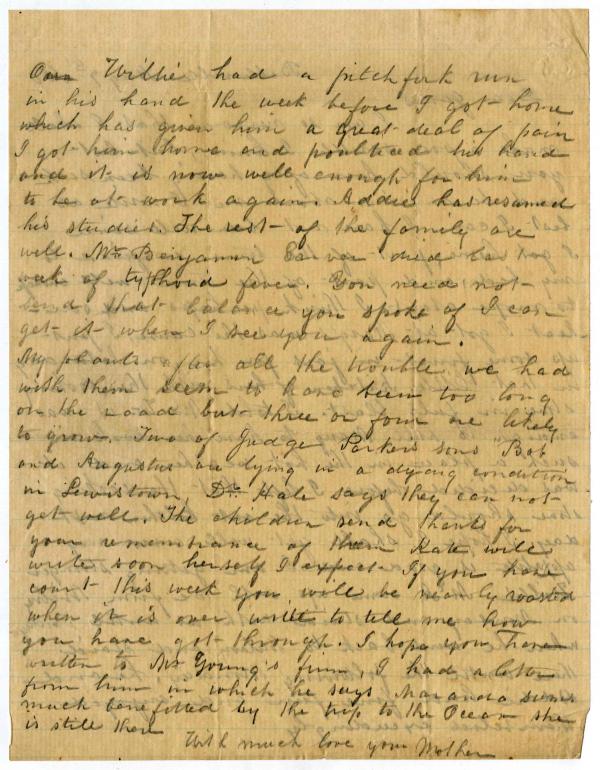 Our Willie had a pitchfork run
in his hand the week before I got home
which has given him a great deal of pain
I got him home and poulticed his hand
and it is now well enough for him
to be at work again. Addie has resumed
his studies. The rest of the family are
well. Mr Benjamin died last
week of typhoid fever. You need not
send that balance you spoke of I can
get it when I see you again.
My plants after all the trouble we had
with them seem to have been too long
on the road but three or four are likely
to grow. Two of Judge Parker's sons "Bob
and Augustus are lying in a dying condition
in Lewistown, Dr. Hale says they can not
get well. The children send thanks for
your remembrance of them Kate will
write soon herself I expect. If you have
court this week you will be nearly roasted
when it is over write to tell me how
you have got through. I hope you have
written to Mr Young's firm, I had a letter
from him in which he says Maranda seems
much benefitted by the trip to the Ocean she
is still there
With much love your Mother